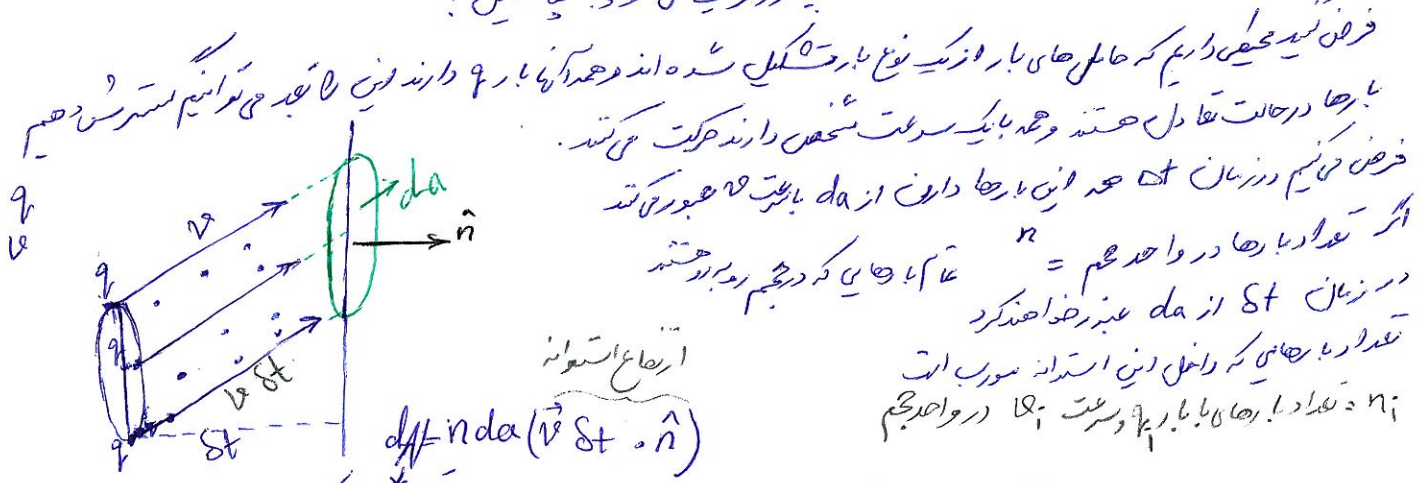 فرض کنید محیطی داریم که حامل های بار از یک نوع بار تشکیل شده اند و همه آنها بار q دارند این را بعد می توانیم گسترش دهیم
بارها در حالت تعادل هستند و همه با یک سرعت مشخص دارند حرکت می کنند.
فرض می کنیم در زمان δt همه این بارها دارند از da با سرعت v عبور می کنند
q
v
اگر تعداد بارها در واحد حجم = n تمام بارهایی که در حجم روبرو هستند
در زمان δt از da عبور خواهند کرد
تعداد بارهایی که داخل این استوانه مورب است
nᵢ = تعداد بارهای با بار qᵢ و سرعت vᵢ در واحد حجم
da
n̂
v
q
q
q
v δt
δt
ارتفاع استوانه
dN = n da (v⃗ δt . n̂)